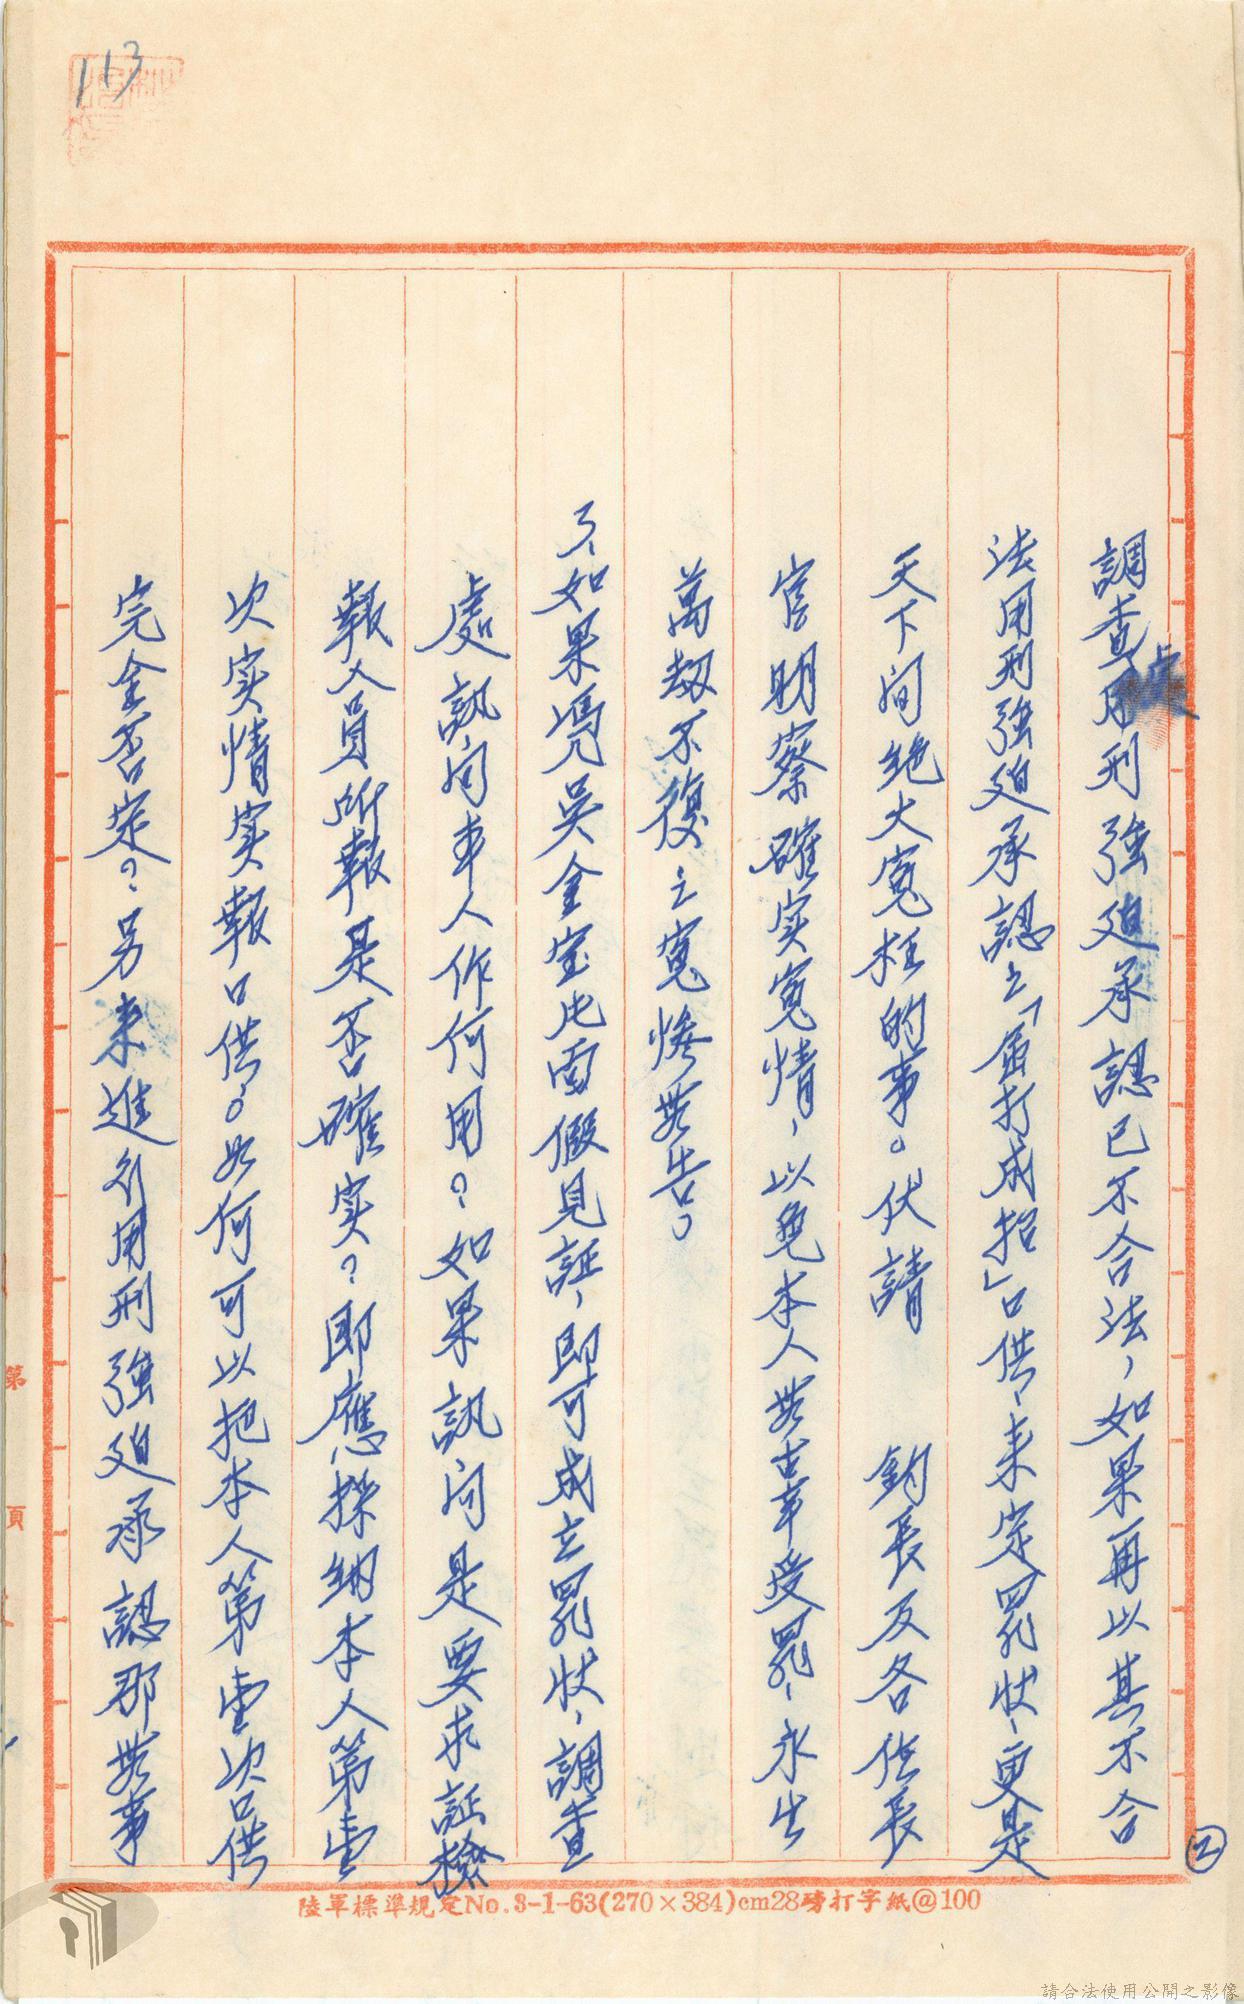 113
調查用刑強廹承認已不合法，如果再以其不合
法用刑強廹承認之「屈打成招」口供、来定罪状、更是
天下间绝大寃枉的事。伏請　鈞長及各位長
官明察確实寃情，以免本人無辜受罪、永生
萬劫不復之寃惨無告。
了、如果馮吴金宝片面假見証，即可成立罪状，調查
處訊问本人作何用？如果訊问是要求証檢
報人員所報是否確实？即應採纳本人第壹
次实情实報口供。如何可以把本人第壹次口供
完全否定？另来進行用刑強廹承認那無事
②
第
頁
陸軍標準規定No.3-1-63(270×384)cm28磅打字紙@100
請合法使用公開之影像